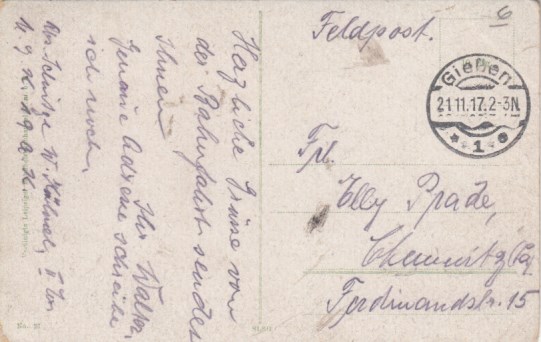 Feldpost.
6
Gießen
21.11.17.2-3N.
* 1 e
Frl.
Elly Spade,
Chemnitz
Ferdinandstr. 15
Herzliche Grüße von
der Bahnfahrt sendet
Ihnen
Ihr Walter.
Genaue Adresse schreibe
ich noch.
Abs. Schütze W.